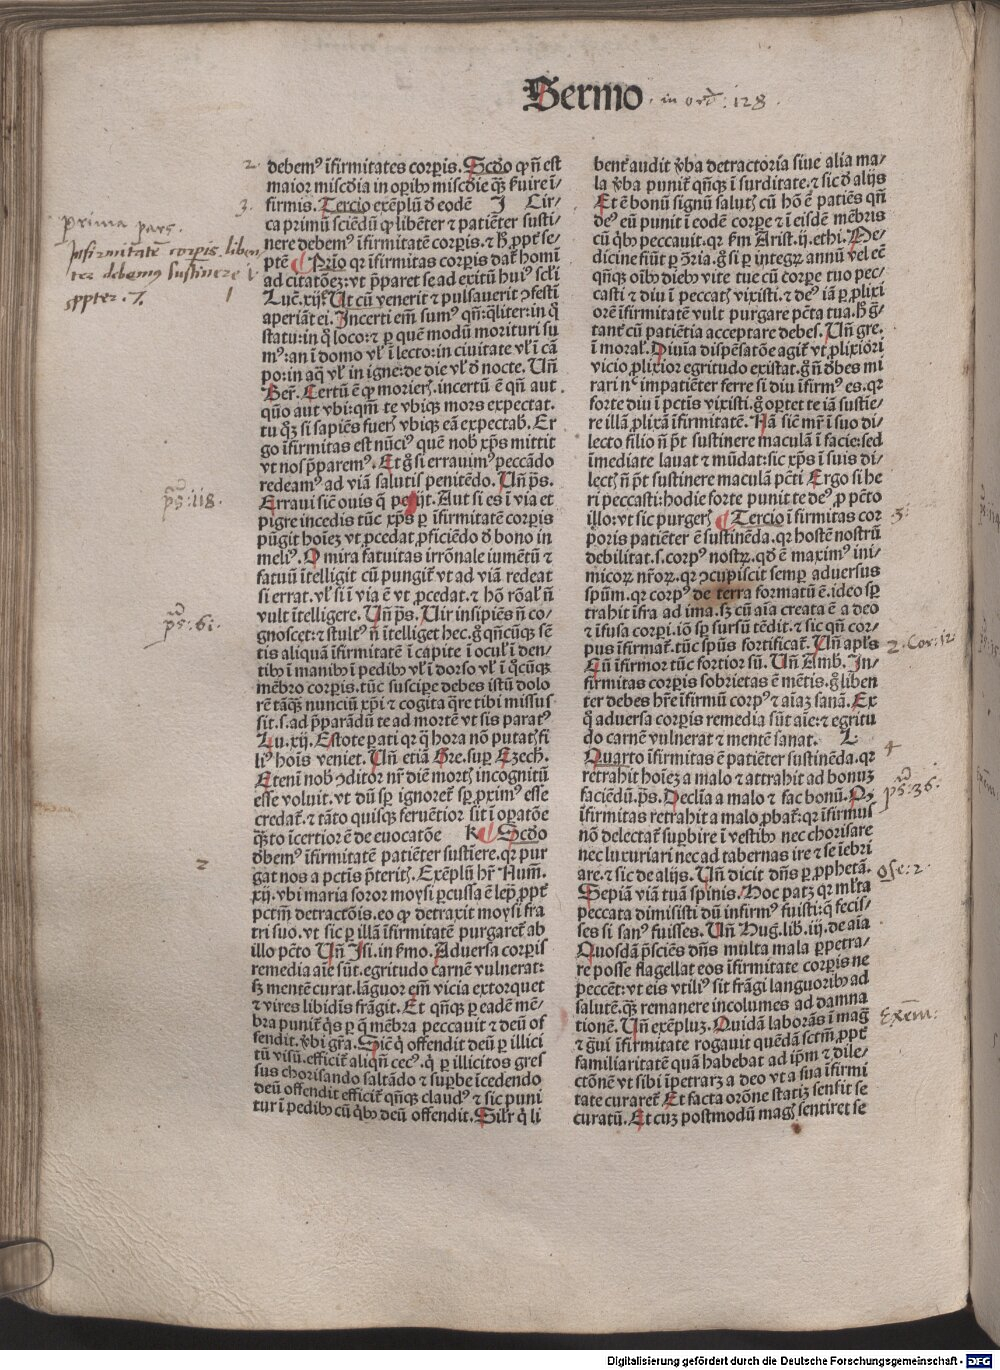 Sermo
in ord: 128.
debemꝰ ĩfirmitates corꝑis. Scđo ꝙ ñ est
maior miscđia in oꝑibꝰ miscđie qȝ ẜuire ĩ/
firmis. Tercio exẽplũ đ eodẽ J Cir/
ca primũ sciẽdũ ꝙ libẽter ⁊ patiẽter susti/
nere debemꝰ ĩfirmitatẽ corꝑis. ⁊ ħ ꝓpť se/
ptẽ Prĩo qr ĩfirmitas corꝑis dať homĩ
ad citatõeȝ: vt p̃paret se ad exitũ huiꝰ scłi
Luc̃. xij. Ut cũ venerit ⁊ pulsauerit ꝯfesti
aperiãt ei. Incerti em̃ sumꝰ qñ: q̃liter: in q̃
statu: in q̃ loco: ⁊ ꝑ quẽ modũ morituri su
mꝰ: an ĩ domo vł ĩ lecto: in ciuitate vł ĩ cã
po: in aq̃ vł in igne: de die vł đ nocte. Uñ
Ber̃. Certũ ẽ ꝙ morieř. incertũ ẽ qñ aut
qũo aut vbi: qm̃ te vbiqȝ mors expectat.
tu q̃ȝ si sapiẽs fueř vbiqȝ eã expectab̃. Er
go ĩfirmitas est nũciꝰ quẽ nob̃ xp̃s mittit
vt nos p̃paremꝰ. Et g̃ si errauimꝰ peccãdo
redeamꝰ ad viã salutis penitẽdo. Uñ p̃s.
Erraui sic̃ ouis q̃ perijt. Aut si es ĩ via et
pigre incedis tũc xp̃s ꝑ ĩfirmitatẽ corꝑis
pũgit hoĩeȝ vt ꝓcedat ꝓficiẽdo đ bono in
meliꝰ. O mira fatuitas irrõnale iumẽtũ ⁊
fatuũ ĩtelligit cũ pungiť vt ad viã redeat
si errat. vł si ĩ via ẽ vt ꝓcedat. ⁊ hõ rõał ñ
vult ĩtelligere. Uñ p̃s. Uir insipiẽs ñ co/
gnoscet: ⁊ stultꝰ ñ ĩtelliget hec. g̃ qñcũqȝ sẽ
tis aliquã ĩfirmitatẽ ĩ capite ĩ oculꝭ ĩ den/
tibꝰ ĩ manibꝰ ĩ pedibꝰ vł ĩ dorso vł ĩ q̃cũqȝ
mẽbro corꝑis. tũc suscipe debes istũ dolo
rẽ tãqȝ nunciũ xp̃i ⁊ cogita q̃re tibi missus
sit. s. ad p̃parãdũ te ad mortẽ vt sis paratꝰ
Lu. xij. Estote ꝑati qr q̃ hora nõ putatꝭ fi
liꝰ hoĩs veniet. Uñ etiã Gre. suꝑ Ezech̃.
Eteni nob̃ ꝯditor nr̃ diẽ mortꝭ incognitũ
esse voluit. vt dũ sꝑ ignoreť sꝑ ꝓximꝰ esse
credať. ⁊ tãto quisqȝ feruẽtior sit ĩ oꝑatõe
qȝto ĩcertior ẽ de euocatõe K Scđo
đbemꝰ ĩfirmitatẽ patiẽter sustĩere. qr pur
gat nos a pctĩs p̃teritꝭ. Exẽplũ hr̃ Num̃.
xij. vbi maria soror moysi ꝑcussa ẽ lep̃ ꝓpť
pctm̃ detractõis. eo ꝙ detraxit moysi fra
tri suo. vt sic ꝑ illã ĩfirmitatẽ purgareť ab
illo pc̃to Uñ Isi. in ẜmo. Aduersa corꝑis
remedia aĩe sũt. egritudo carnẽ vulnerat:
sȝ mentẽ curat. lãguor em̃ vicia extorquet
⁊ vires libidĩs frãgit. Et qñqȝ ꝑ eadẽ mẽ/
bra puniť q̃s ꝑ q̃ mẽbra peccauit ⁊ deũ of
fendit. v̾bi gr̃a. Sic̃ q̃ offendit deũ ꝑ illici
tũ visũ. efficiť aliqñ cecꝰ. q̃ ꝑ illicitos gres
sus chorisando saltãdo ⁊ suꝑbe ĩcedendo
deũ offendit efficiť qñqȝ claudꝰ ⁊ sic puni
tur ĩ pedibꝰ cũ q̃bꝰ deũ offendit. Silr̃ q̃ li
bent̾ audit v̾ba detractoria siue alia ma/
la v̾ba puniť qñqȝ ĩ surditate. ⁊ sic đ alijs
Et ẽ bonũ signũ salutꝭ cũ hõ ẽ patiẽs qñ
deꝰ eũ punit ĩ eodẽ corꝑe ⁊ ĩ eisdẽ mẽbris
cũ q̃bꝰ peccauit. qr ẜm Arist. ij. ethi. Me/
dicine fiũt ꝑ ꝯ̃ria. g̃ si ꝑ integȝ annũ vel eẽ
qñqȝ oĩbꝰ diebꝰ vite tue cũ corꝑe tuo pec/
casti ⁊ diu ĩ peccatꝭ vixisti. ⁊ deꝰ iã ꝑ ꝓlixi
orẽ ĩfirmitatẽ vult purgare pctã tua. ħ g̃/
tanť cũ patiẽtia acceptare debes. Uñ gre.
ĩ morał. Diuĩa dispẽsatõe agiť vt ꝓlixiori
vicio ꝓlixior egritudo existat. g̃ ñ đbes mĩ
rari nꝰ impatiẽter ferre si diu ĩfirmꝰ es. qr
forte diu ĩ pctĩs vixisti. g̃ oꝑtet te iã sustĩe/
re illã ꝓlixã ĩfirmitatẽ. Nã sic̃ mr̃ ĩ suo di/
lecto filio ñ p̃t sustinere maculã ĩ facie: sed
ĩmediate lauat ⁊ mũdat: sic xp̃s ĩ suis di/
lectꝭ ñ p̃t sustinere maculã pc̃ti Ergo si he
ri peccasti: hodie forte punit te deꝰ ꝓ pc̃to
illo: vt sic purgerꝭ Tercio ĩfirmitas cor
poris patiẽter ẽ sustinẽda. qr hostẽ nostrũ
debilitat. s. corpꝰ nostȝ. qđ ẽ maximꝰ ini/
micoꝝ nr̃oꝝ. qr ꝯcupiscit semꝑ aduersus
spũm. qr corpꝰ de terra formatũ ẽ. ideo sꝑ
trahit ĩfra ad ima. sȝ cũ aĩa creata ẽ a deo
⁊ ĩfusa corpi. iõ sꝑ sursũ tẽdit. ⁊ sic qñ cor/
pus ĩfirmať. tũc spũs fortificať. Uñ apl̃s
Cũ ĩfirmor tũc fortior sũ. Uñ Amb. In/
firmitas corꝑis sobrietas ẽ mẽtis. g̃ libẽn
ter debes hr̃e ĩfirmũ corpꝰ ⁊ aĩaȝ sanã. Ex
q̃ aduersa corꝑis remedia sũt aĩe: ⁊ egritu
do carnẽ vulnerat ⁊ mentẽ sanat. L
Quarto ĩfirmitas ẽ patiẽter sustinẽda. qr
retrahit hoĩeȝ a malo ⁊ attrahit ad bonuȝ
faciẽdũ. p̃s. Declĩa a malo ⁊ fac bonũ. Qꝙ
ĩfirmitas retrahit a malo ꝓbať: qr ĩfirmus
nõ delectať suꝑbire ĩ vestibꝰ nec chorisare
nec luxuriari nec ad tabernas ire ⁊ se ĩebri
are. ⁊ sic de alijs. Uñ dicit dñs ꝑ ꝓphetã.
Sepiã viã tuã spinis. Hoc patȝ qr mľta
peccata dimisisti dũ infirmꝰ fuisti: q̃ fecis/
ses si sanꝰ fuisses. Uñ Hug̃. lib. iij. de aĩa
Quosdã p̃sciẽs dñs multa mala ꝑpetra/
re posse flagellat eos ĩfirmitate corꝑis ne
peccẽt: vt eis vtiliꝰ sit frãgi languoribꝰ ad
salutẽ. qȝ remanere incolumes ad damna
tionẽ. Uñ exẽpluȝ. Quidã laborãs ĩ mag̃
⁊ g̃ui ĩfirmitate rogauit quẽdã sctm̃ ꝓpť
familiaritatẽ quã habebat ad ip̃m ⁊ dile/
ctõnẽ vt sibi ĩpetraȝ a deo vt a sua ĩfirmi
tate curareť Et facta orõne statiȝ sensit se
curatũ. Et cuȝ postmodũ magꝭ sentiret se
2.
3.
prima pars.
Infirmitatẽ corpis liben
ter debemus sustinere
ppter. 7.
1
p̃s: 118.
p̃s: 61.
2
3.
2. Cor: 12
4
p̃s: 36.
Ose: 2.
Exem:
Digitalisierung gefördert durch die Deutsche Forschungsgemeinschaft - DFG